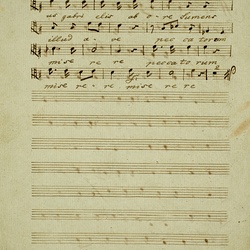 us gabri elis ab o-re Sumens
illud a-ve pec ca torum
mise re re peccato rum
mise re-re mise re re